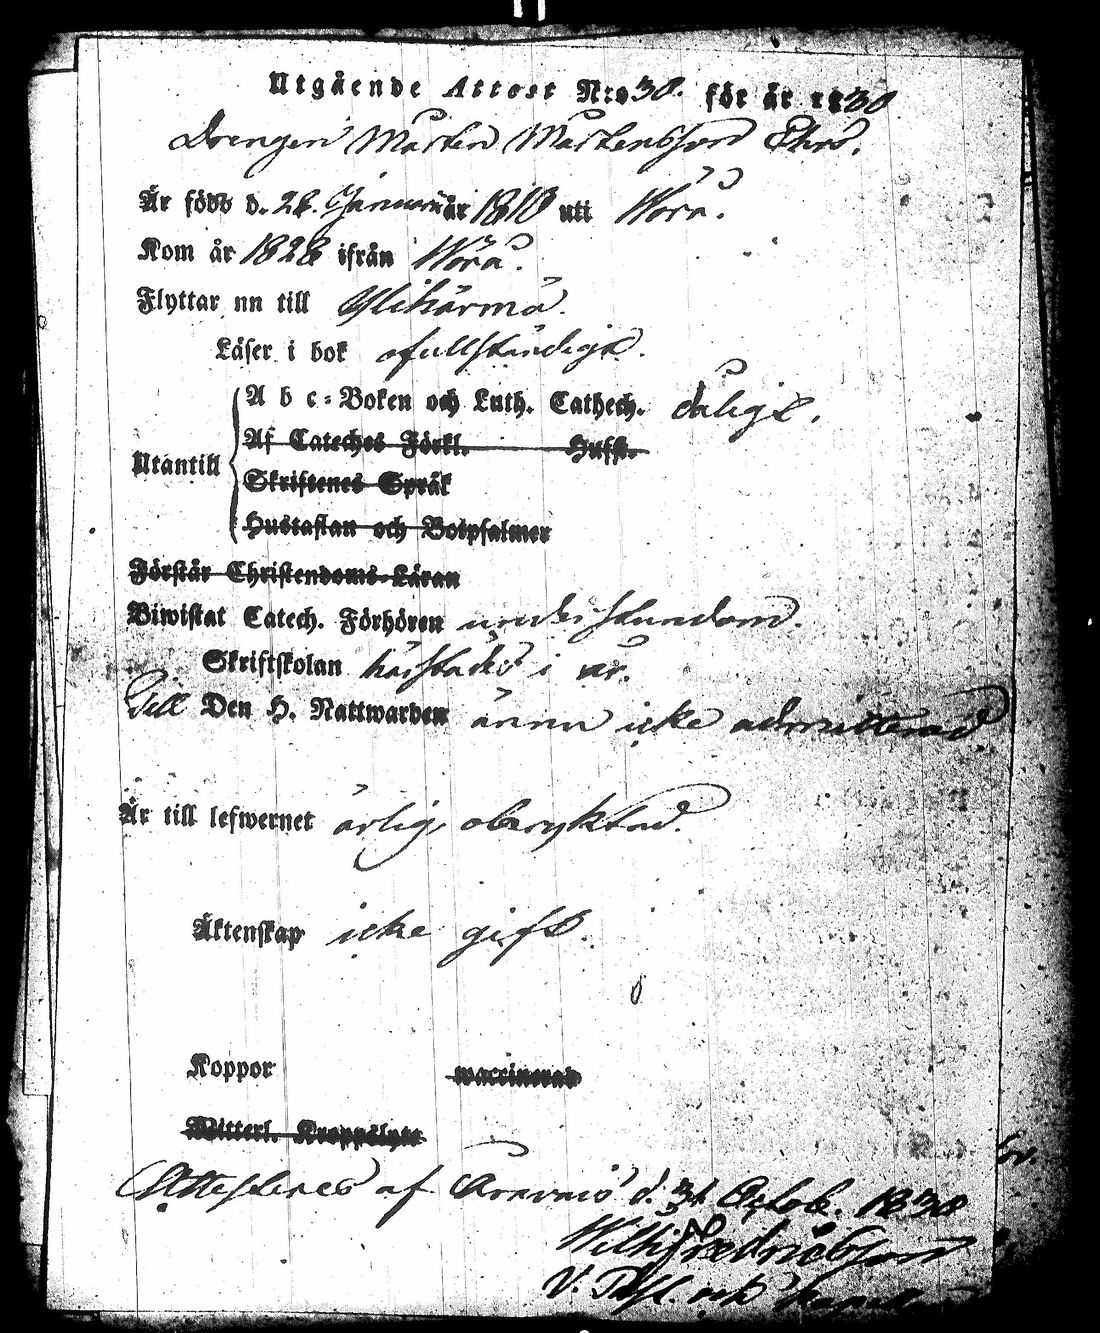 Utgående Attest N:o 30. för år 1830
Drengen Mårten Mårtensson Ehrs.
Är född d. 28. Januari år 1810 uti Wörå.
Kom år 1828 ifrån Wörå.
Flyttar nu till Ylihärmä.
Läser i bok ofullständigt.
Utantill
A b c-Boken och Luth. Cathech. daligt.
Af Cateches Förkl. Hufst.
Skriftenes Språk
Hustaflan och Botpsalmer
Förstår Christendoms-Läran
Biwistat Catech. Förhören understundom.
Skriftskolan härstädes i år.
Till Den H. Nattwarden ännu icke admitterad
Är till lefwernet ärlig, oberyktad.
Äktenskap icke gift.
Koppor waccinerad
Witterl. Kroppslyte
Attesteres af Oravais d. 31 Octob. 1830
Wilh. Fredricsson
V. Past. och